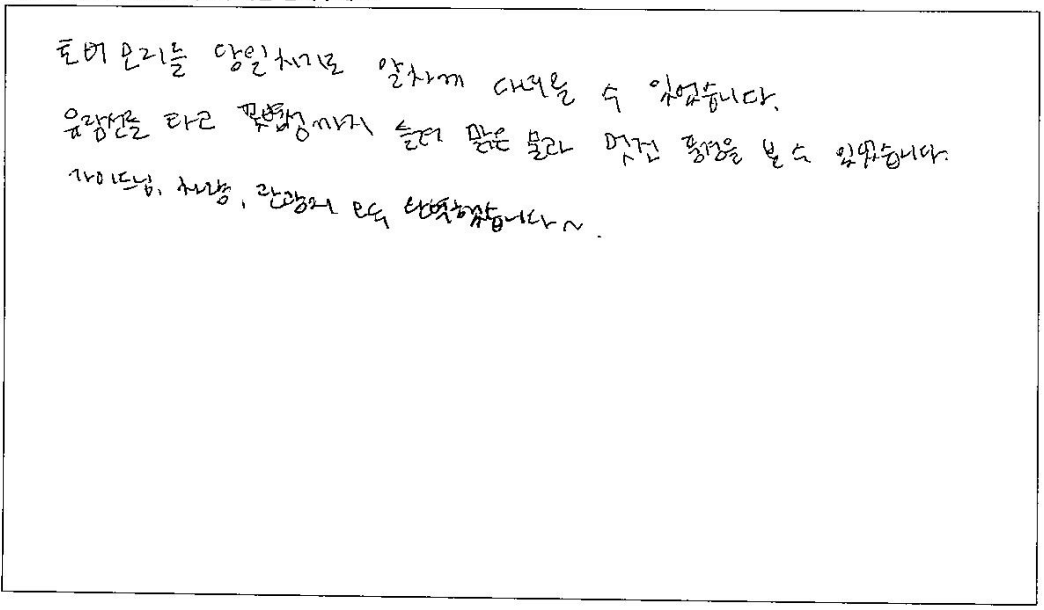 토버모리를 당일치기로 알차게 다녀올 수 있었습니다.
유람선을 타고 꽃병섬까지 들려 맑은 물과 멋진 풍경을 볼 수 있었습니다.
가이드님, 차량, 관광지 모두 완벽했습니다~.